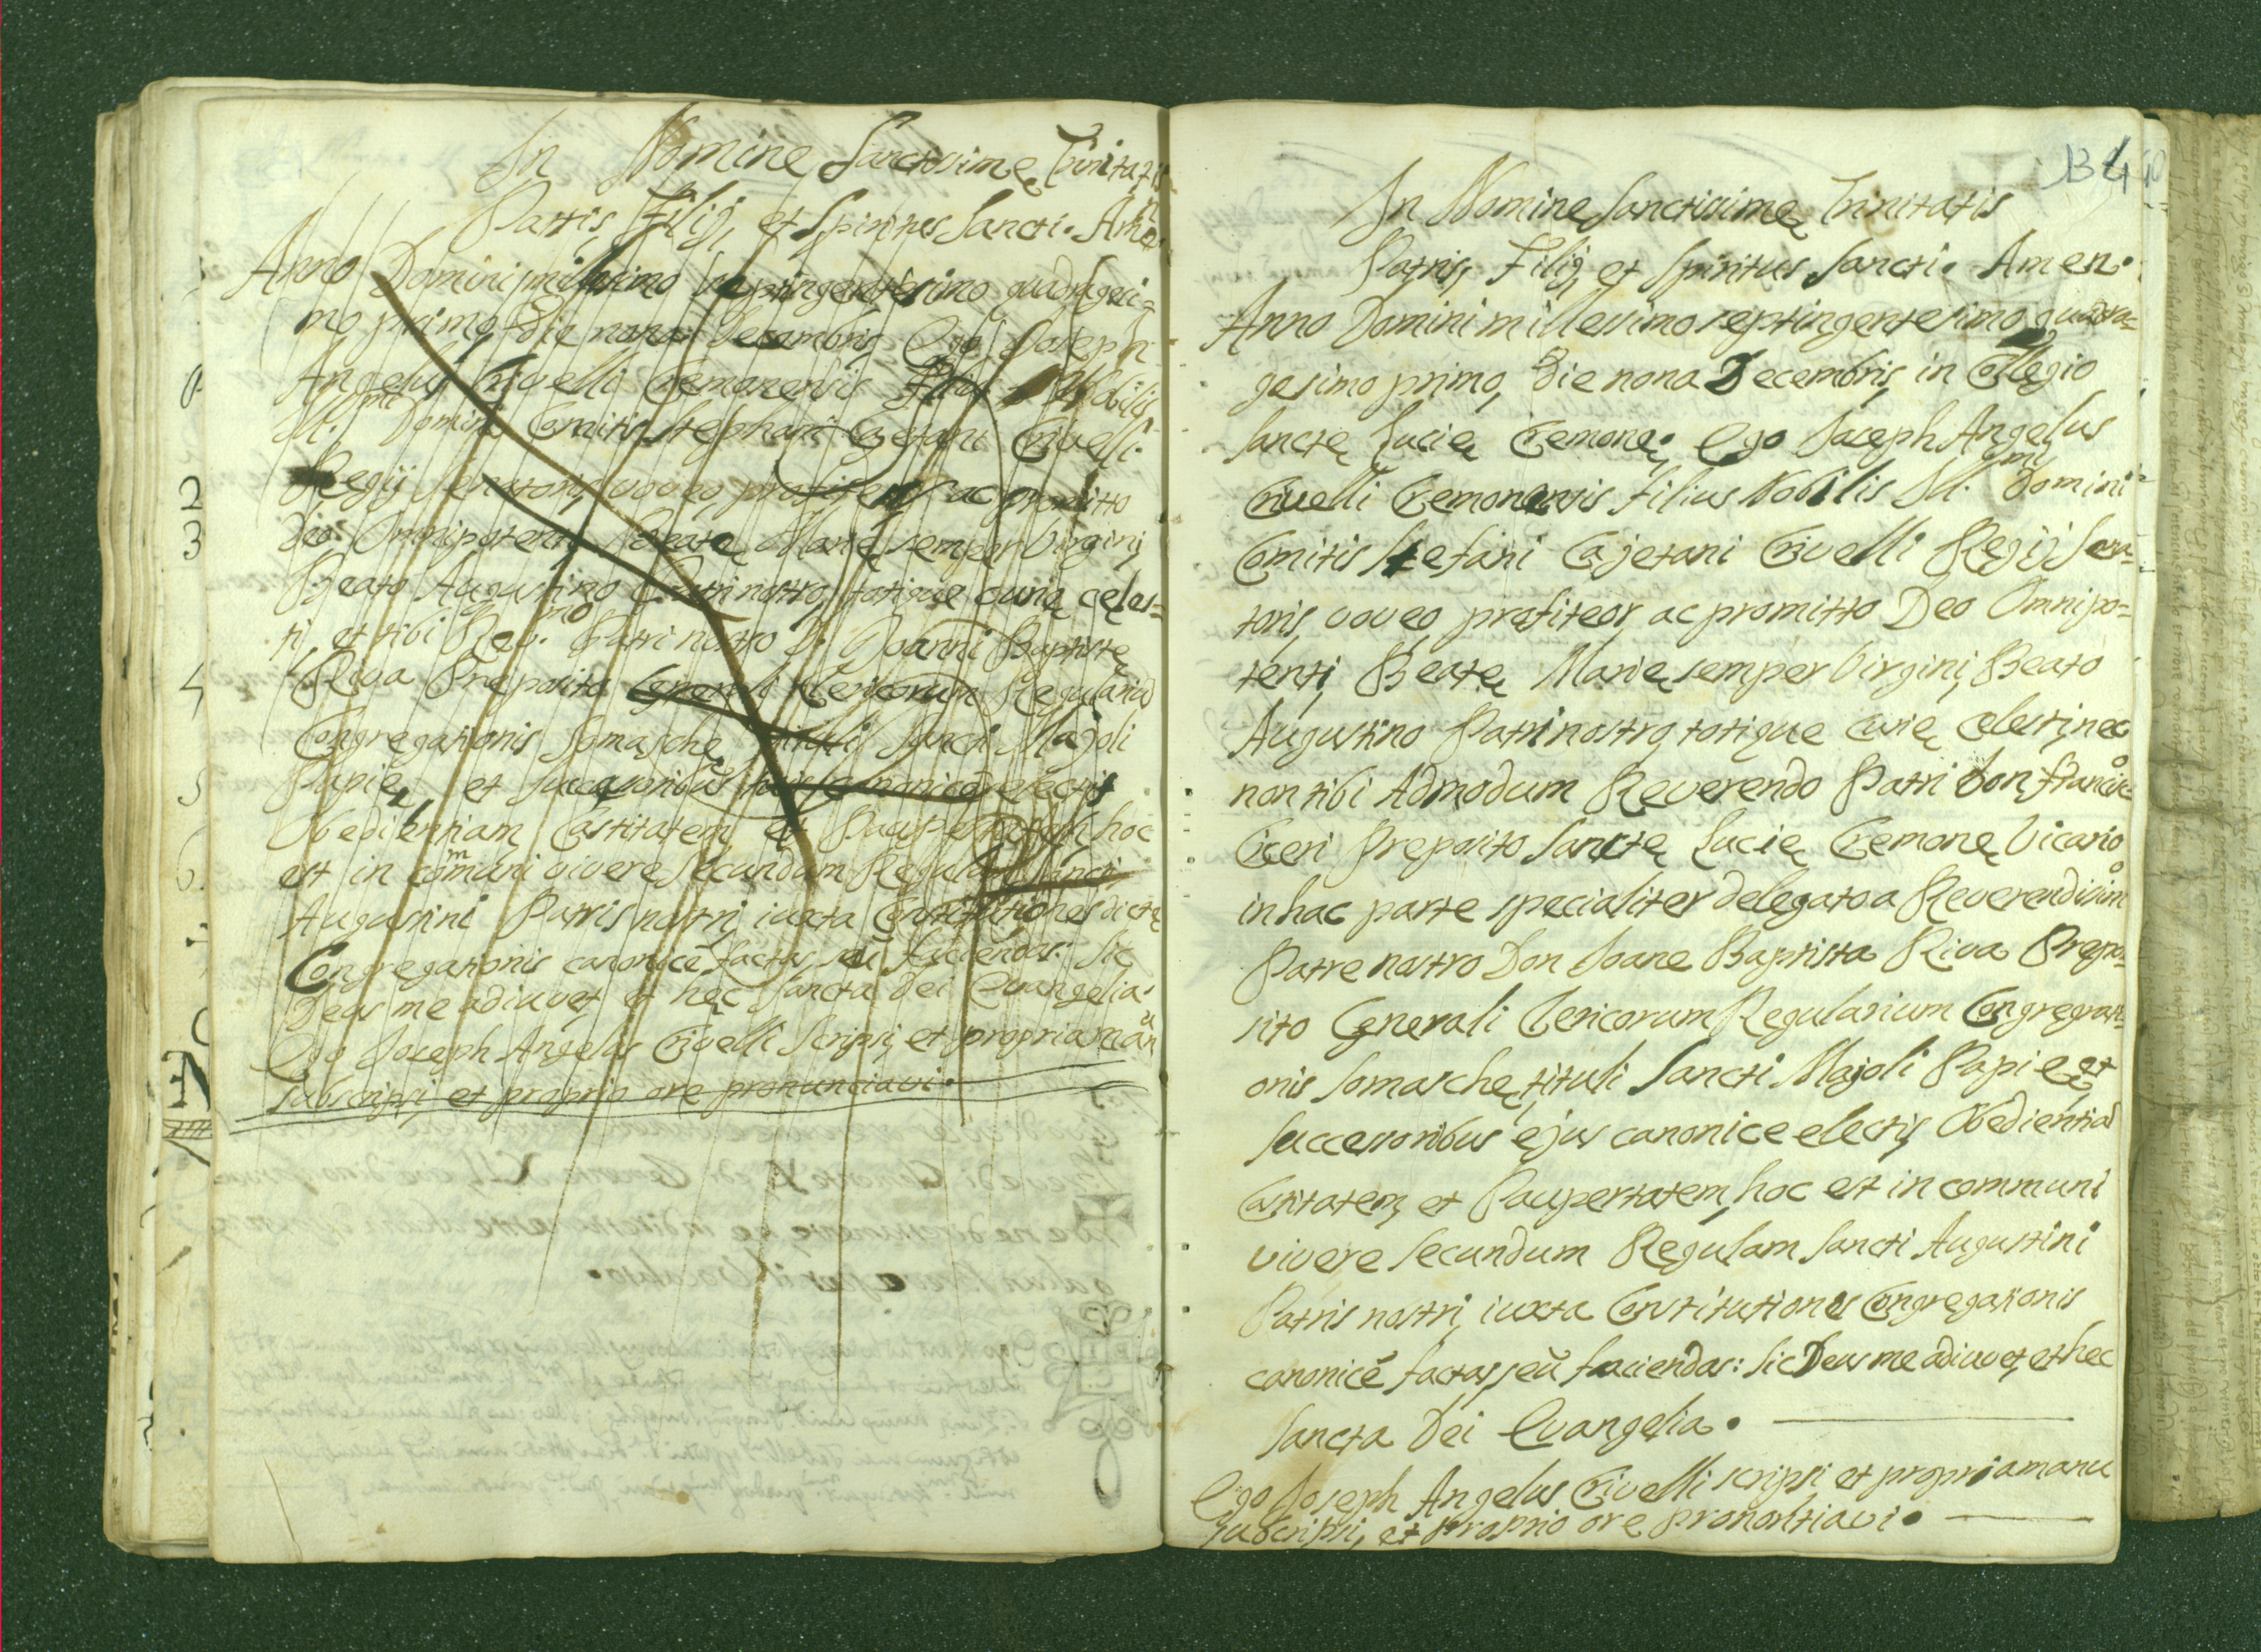 In Nomine Sanctissimę Trinitatis
Patris, Filij, et Spiritus Sancti. Amen
Anno Domini millesimo septingentesimo quadrageci=
mo primo, die nona Decembris, Ego Joseph
Angelus Crivelli Cremonensis Filius Nobilis
Ill.mi Domini Comitis Stephani Cajetani Crivelli
Regij Senatoris, voveo, profiteor, ac promitto
Deo Omnipotenti, Beatę Marię semper Virgini,
Beato Augustino Patri nostro, totique curię cęles=
ti, et tibi Rev.mo Patri nostro D. Joanni Baptistę
Riva Preposito Generali Clericorum Regularium
Congregationis Somaschę tituli Sancti Majoli
Papię, et successoribus canonice electis
Obedientiam, Castitatem, et Paupertatem, hoc
est in comuni vivere secundum Regulam Sancti
Augustini Patris nostri, iuxta Constitutiones dictę
Congregationis canonicè factas, seù faciendas: Sic
Deus me adiuvet, et hęc Sancta Dei Evangelia.
Ego Joseph Angelus Crivelli scripsi, et propria manu
subscripsi, et proprio ore pronunciavi.
2
3
4
5
6.
134
In Nomine Sanctissimę Trinitatis
Patris, Filij, et Spiritus Sancti. Amen.
Anno Domini millesimo septingentesimo quadra=
gesimo primo, die nona Decembris, in Collegio
Sanctę Lucię Cremonę. Ego Joseph Angelus
Crivelli Cremonensis Filius Nobilis Ill.mi Domini
Comitis Stefani Cajetani Crivelli Regij Sena=
toris, voveo, profiteor, ac promitto Deo Omnipo=
tenti, Beatę Marię semper Virgini, Beato
Augustino Patri nostro, totique Curię celesti, nec
non tibi Admodum Reverendo Patri Don Francisco
Ciceri Preposito Sanctę Lucię Cremonę Vicario
in hac parte specialiter delegato a Reverendissimo
Patre nostro Don Joane Baptista Riva Prepo=
sito Generali Clericorum Regularium Congregati=
onis Somaschę, tituli Sancti Majoli Papię, et
successoribus ejus canonice electis, Obedientiam
Castitatem, et Paupertatem, hoc est in communi
vivere secundum Regulam Sancti Augustini
Patris nostri, iuxta Constitutiones Congregationis
canonicè factas, seù faciendas: Sic Deus me adiuvet, et hec
Sancta Dei Evangelia.
Ego Joseph Angelus Crivelli scripsi et propria manu
subscripsi, et proprio ore pronontiavi.